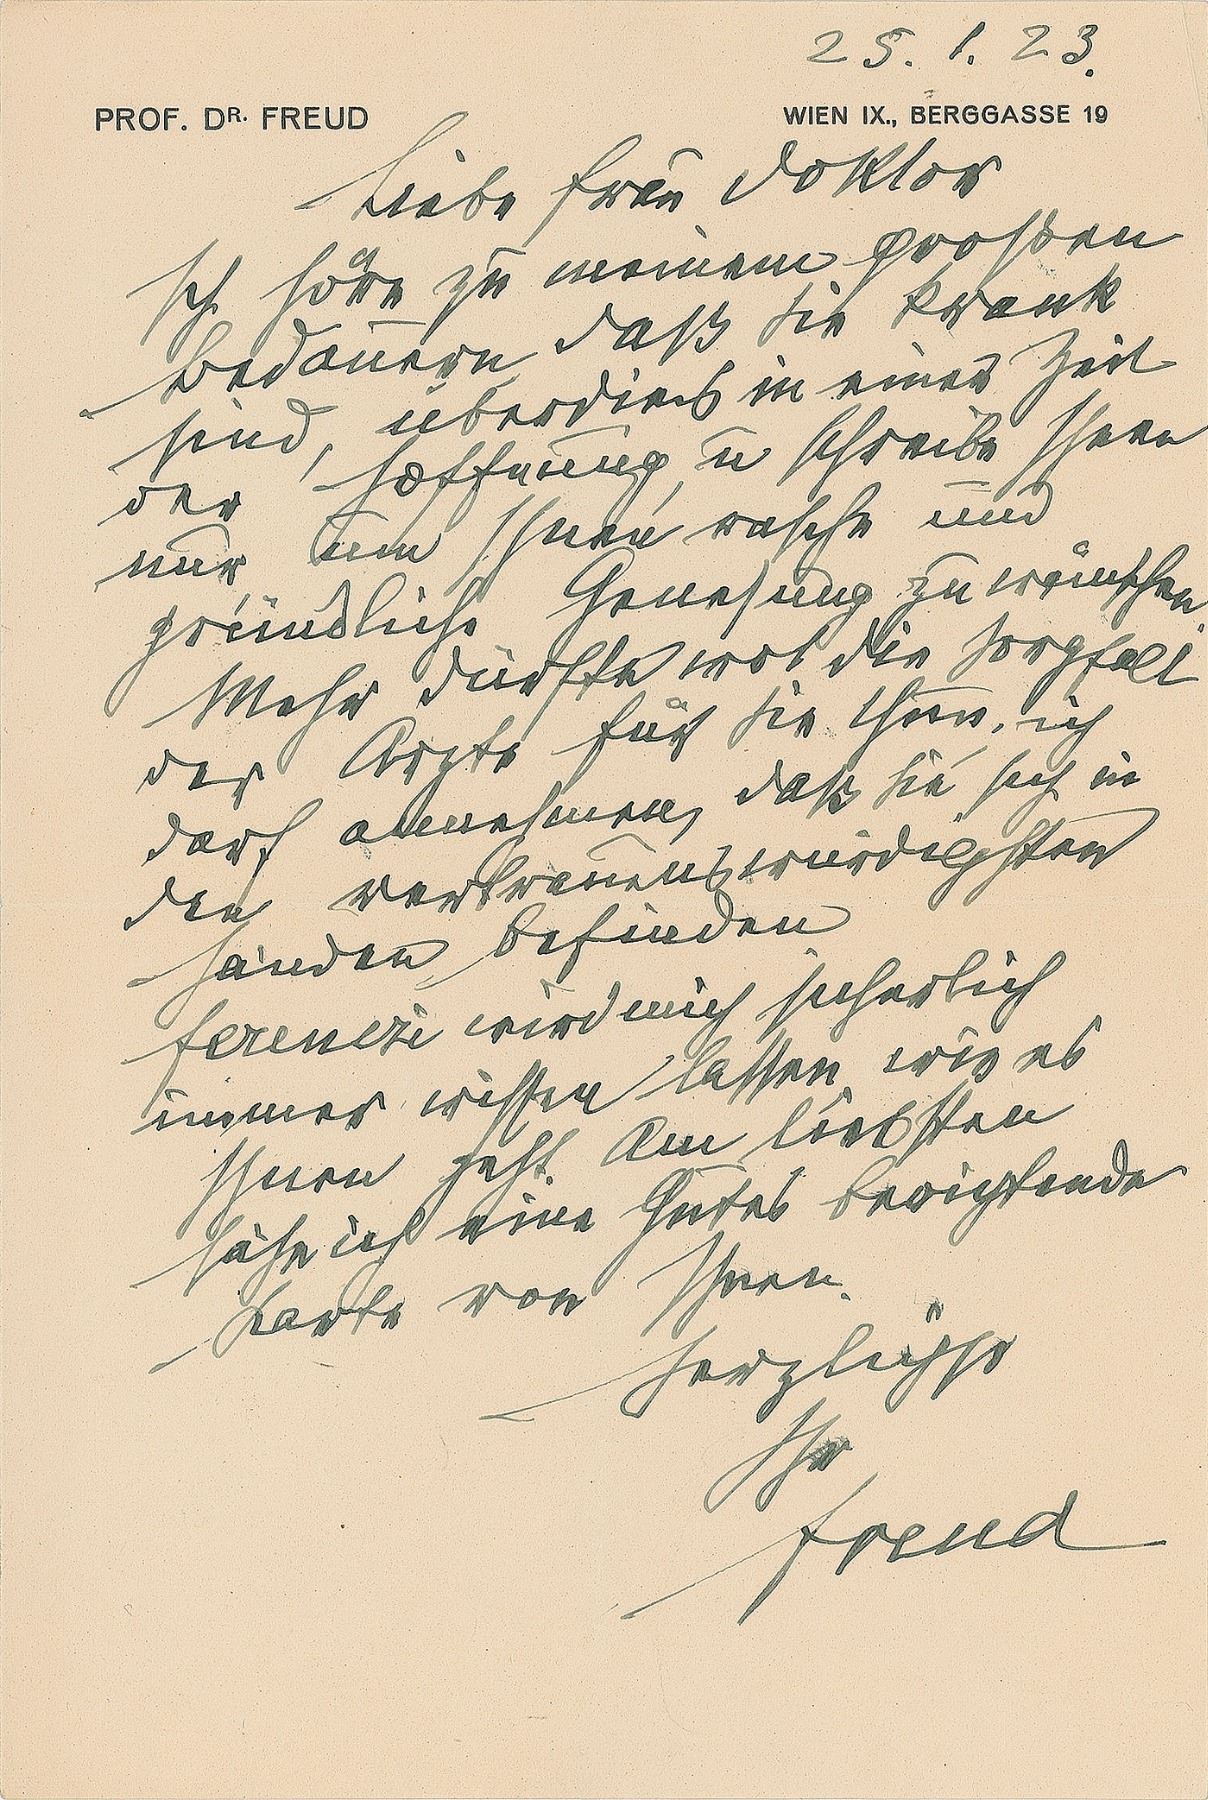 25. 1. 23.
PROF. DR. FREUD WIEN IX., BERGGASSE 19
Liebe Frau Doktor
Ich höre zu meinem großen
Bedauern, daß Sie krank
sind, überdies in einer Zeit
der Hoffnung, u schreibe Ihnen
nur um Ihnen rasche und
gründliche Genesung zu wünschen.
Mehr dürfte wol die Sorgfalt
der Ärzte für Sie thun. ich
darf annehmen, daß Sie sich in
den vertrauenswürdigsten
Händen befinden
Ferenczi wird mich sicherlich
immer wissen lassen, wie es
Ihnen geht. Am liebsten
sähe ich eine Gutes bezeugende
Karte von Ihnen.
Herzlichst
Ihr
Freud